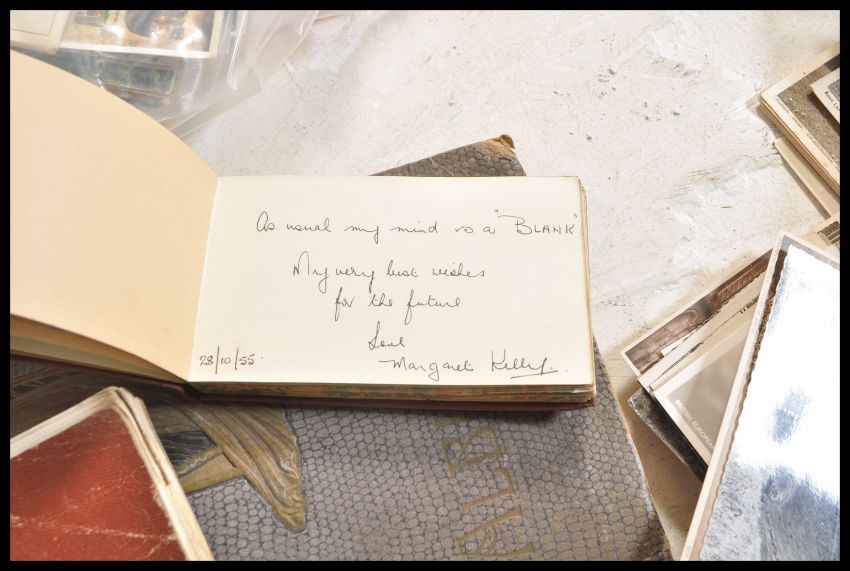 As usual my mind is a "BLANK"
My very best wishes
for the future
Love
Margaret Kelly.
28/10/55.
ALB
BRITISH EUROPEAN